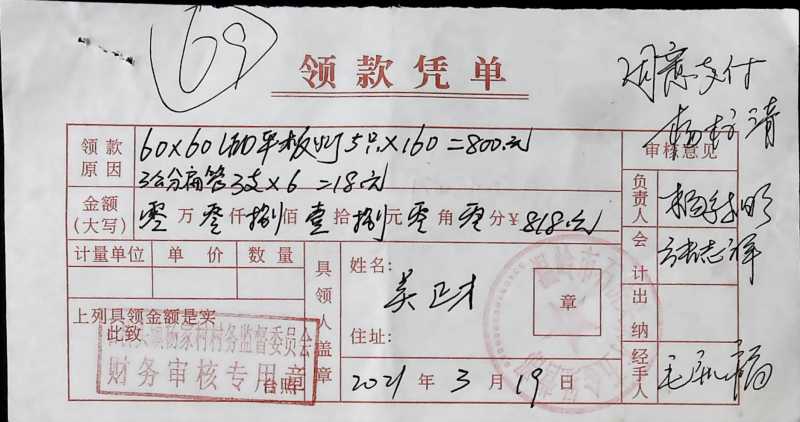 69
领款凭单
同意支付
领款原因
60×60 平板灯 5只×160=800元
3支×6=18元
审核意见
金额(大写) 零万零仟捌佰壹拾捌元零角零分¥818元
负责人
计量单位 单价 数量
具领人盖章
姓名:
吴卫才
章
会计
上列具领金额是实
此致
杨家村村务监督委员会
财务审核专用章
台照
住址:
出纳
2021年3月19日
经手人